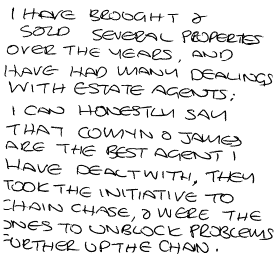 I HAVE BROUGHT &
SOLD SEVERAL PROPERTIES
OVER THE YEARS, AND
HAVE HAD MANY DEALINGS
WITH ESTATE AGENTS;
I CAN HONESTLY SAY
THAT COWYN & JAMES
ARE THE BEST AGENT I
HAVE DEALT WITH, THEY
TOOK THE INITIATIVE TO
CHAIN CHASE, & WERE THE
ONES TO UNBLOCK PROBLEMS
FURTHER UP THE CHAN.